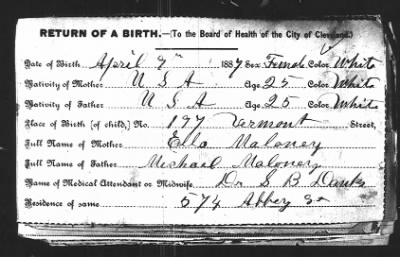 RETURN OF A BIRTH.—(To the Board of Health of the City of Cleveland.)
Date of Birth April 9th 1887 Sex Female Color White
Nativity of Mother U S A Age 25 Color White
Nativity of Father U S A Age 25 Color White
Place of Birth [of child,] No. 197 Vermont Street,
Full Name of Mother Ella Maloney
Full Name of Father Michael Maloney
Name of Medical Attendant or Midwife, Dr S B
Residence of same 574 Abbey